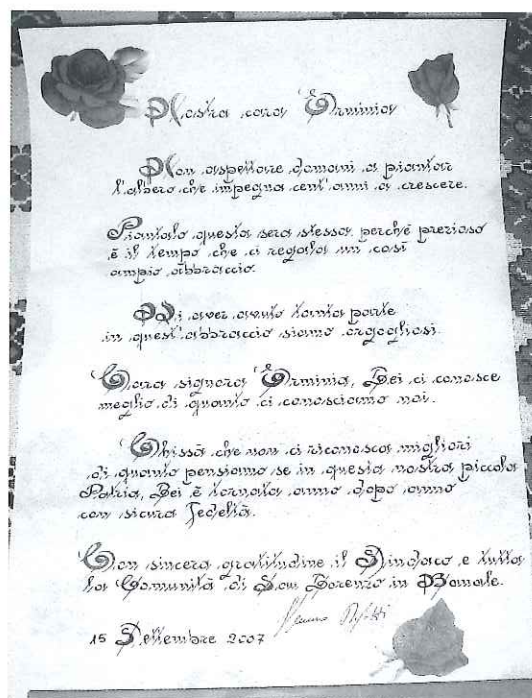 Nostra cara Erminia
Non aspettare domani a piantar
l'albero che impegna cent'anni a crescere.
Piantalo questa sera stessa perché prezioso
è il tempo che ci regala un così
ampio abbraccio.
Di aver avuto tanta parte
in quest'abbraccio siamo orgogliosi.
Cara signora Erminia, Lei ci conosce
meglio di quanto ci conosciamo noi.
Chissà che non ci riconosca migliori
di quanto pensiamo se in questa nostra piccola
Patria, Lei è tornata anno dopo anno
con sicura fedeltà.
Con sincera gratitudine il Sindaco e tutta
la Comunità di San Lorenzo in Banale.
15 Settembre 2007